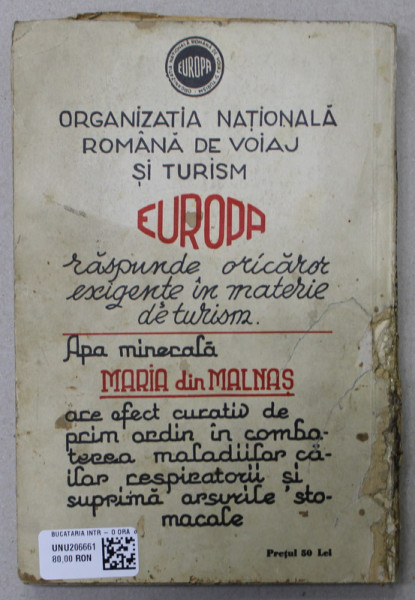 EUROPA
ORGANIZAȚIA NAȚIONALĂ
ROMÂNĂ DE VOIAJ
ȘI TURISM
EUROPA
răspunde oricăror
exigențe în materie
de turism.
Apa minerală
MARIA din MALNAȘ
are efect curativ de
prim ordin în comba-
terea maladiilor că-
ilor respiratorii și
suprimă arsurile sto-
macale
Prețul 80 Lei
BUCATARIA INTR - O ORA
UNU206661
80,00 RON